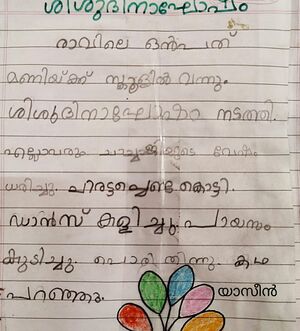 ശിശുദിനാഘോഷം
രാവിലെ ഒൻപത്
മണിയ്ക്ക് സ്കൂളിൽ വന്നു.
ശിശുദിനാഘോഷം നടത്തി.
എല്ലാവരും ചാച്ചാജിയുടെ വേഷം
ധരിച്ചു. ചിരട്ടച്ചെണ്ട കൊട്ടി.
ഡാൻസ് കളിച്ചു. പായസം
കുുടിച്ചു. പൊരി തിന്നു. കഥ
പറഞ്ഞു.
യാസീൻ